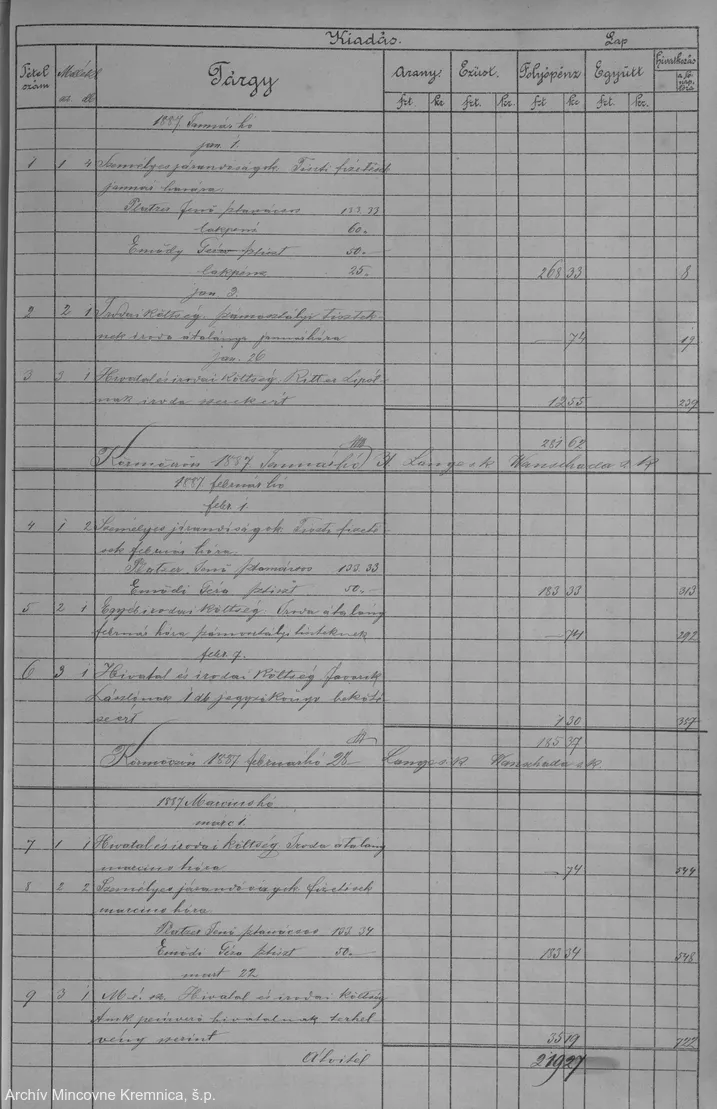 Kiadás. Lap
Tétel szám Mellékl. sz. db. Tárgy Arany. Ezüst. Folyópénz Együtt Hivatkozás
frt. kr. frt. kr. frt kr frt. kr. a fő napló lóra
1887 Januárhó
jan. 1.
1 1 4 Személyes járandóságok. Tiszti fizetések
januári hóra.
Platzer Jenő ptanácsos 133.33
lakpénz 60.-
Emődy Géza ptiszt 50.-
lakpénz 25.- 268 33 8
jan. 3.
2 2 1 Irodai költség. Számosztályi tisztek-
nek iroda átalánya januárhóra — 74 19
jan. 26
3 3 1 Hivatal és irodai költség Ritter Lipót-
nak iroda szerekért 12 55 239
281 62
Körmöczön 1887 Januárhó 31 Lange sk Wanschada sk
1887 februárhó
febr. 1.
4 1 2 Személyes járandóságok Tiszti fizeté-
sek februári hóra.
Platzer Jenő ptanácsos 133.33
Emődi Géza ptiszt 50.- 183 33 313
5 2 1 Egyéb irodai költség. Iroda átalány
február hóra számosztályi tiszteknek — 74 292
febr. 7.
6 3 1 Hivatal és irodai költség
Lászlónak 1 db jegyzőkönyv bekötö-
seért 1 30 357
185 37
Körmöczön 1887 februárhó 28 Lange sk Wanschada sk
1887 Marciushó
marc 1.
7 1 1 Hivatal és irodai költség Iroda átalány
marcius hóra — 74 544
8 2 2 Személyes járandóságok fizetések
marcius hóra
Platzer Jenő ptanácsos 133.34
Emődi Géza ptiszt 50.- 183 34 548
mart 22
9 3 1 M. é. sz. Hivatal és irodai költség
A mk pénzverő hivatalnak terhel
vény szerint 35 19 722
Átvitel 219 27
Archív Mincovne Kremnica, š.p.